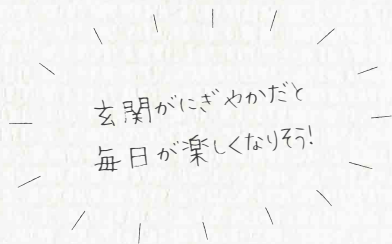 玄関がにぎやかだと
毎日が楽しくなりそう!